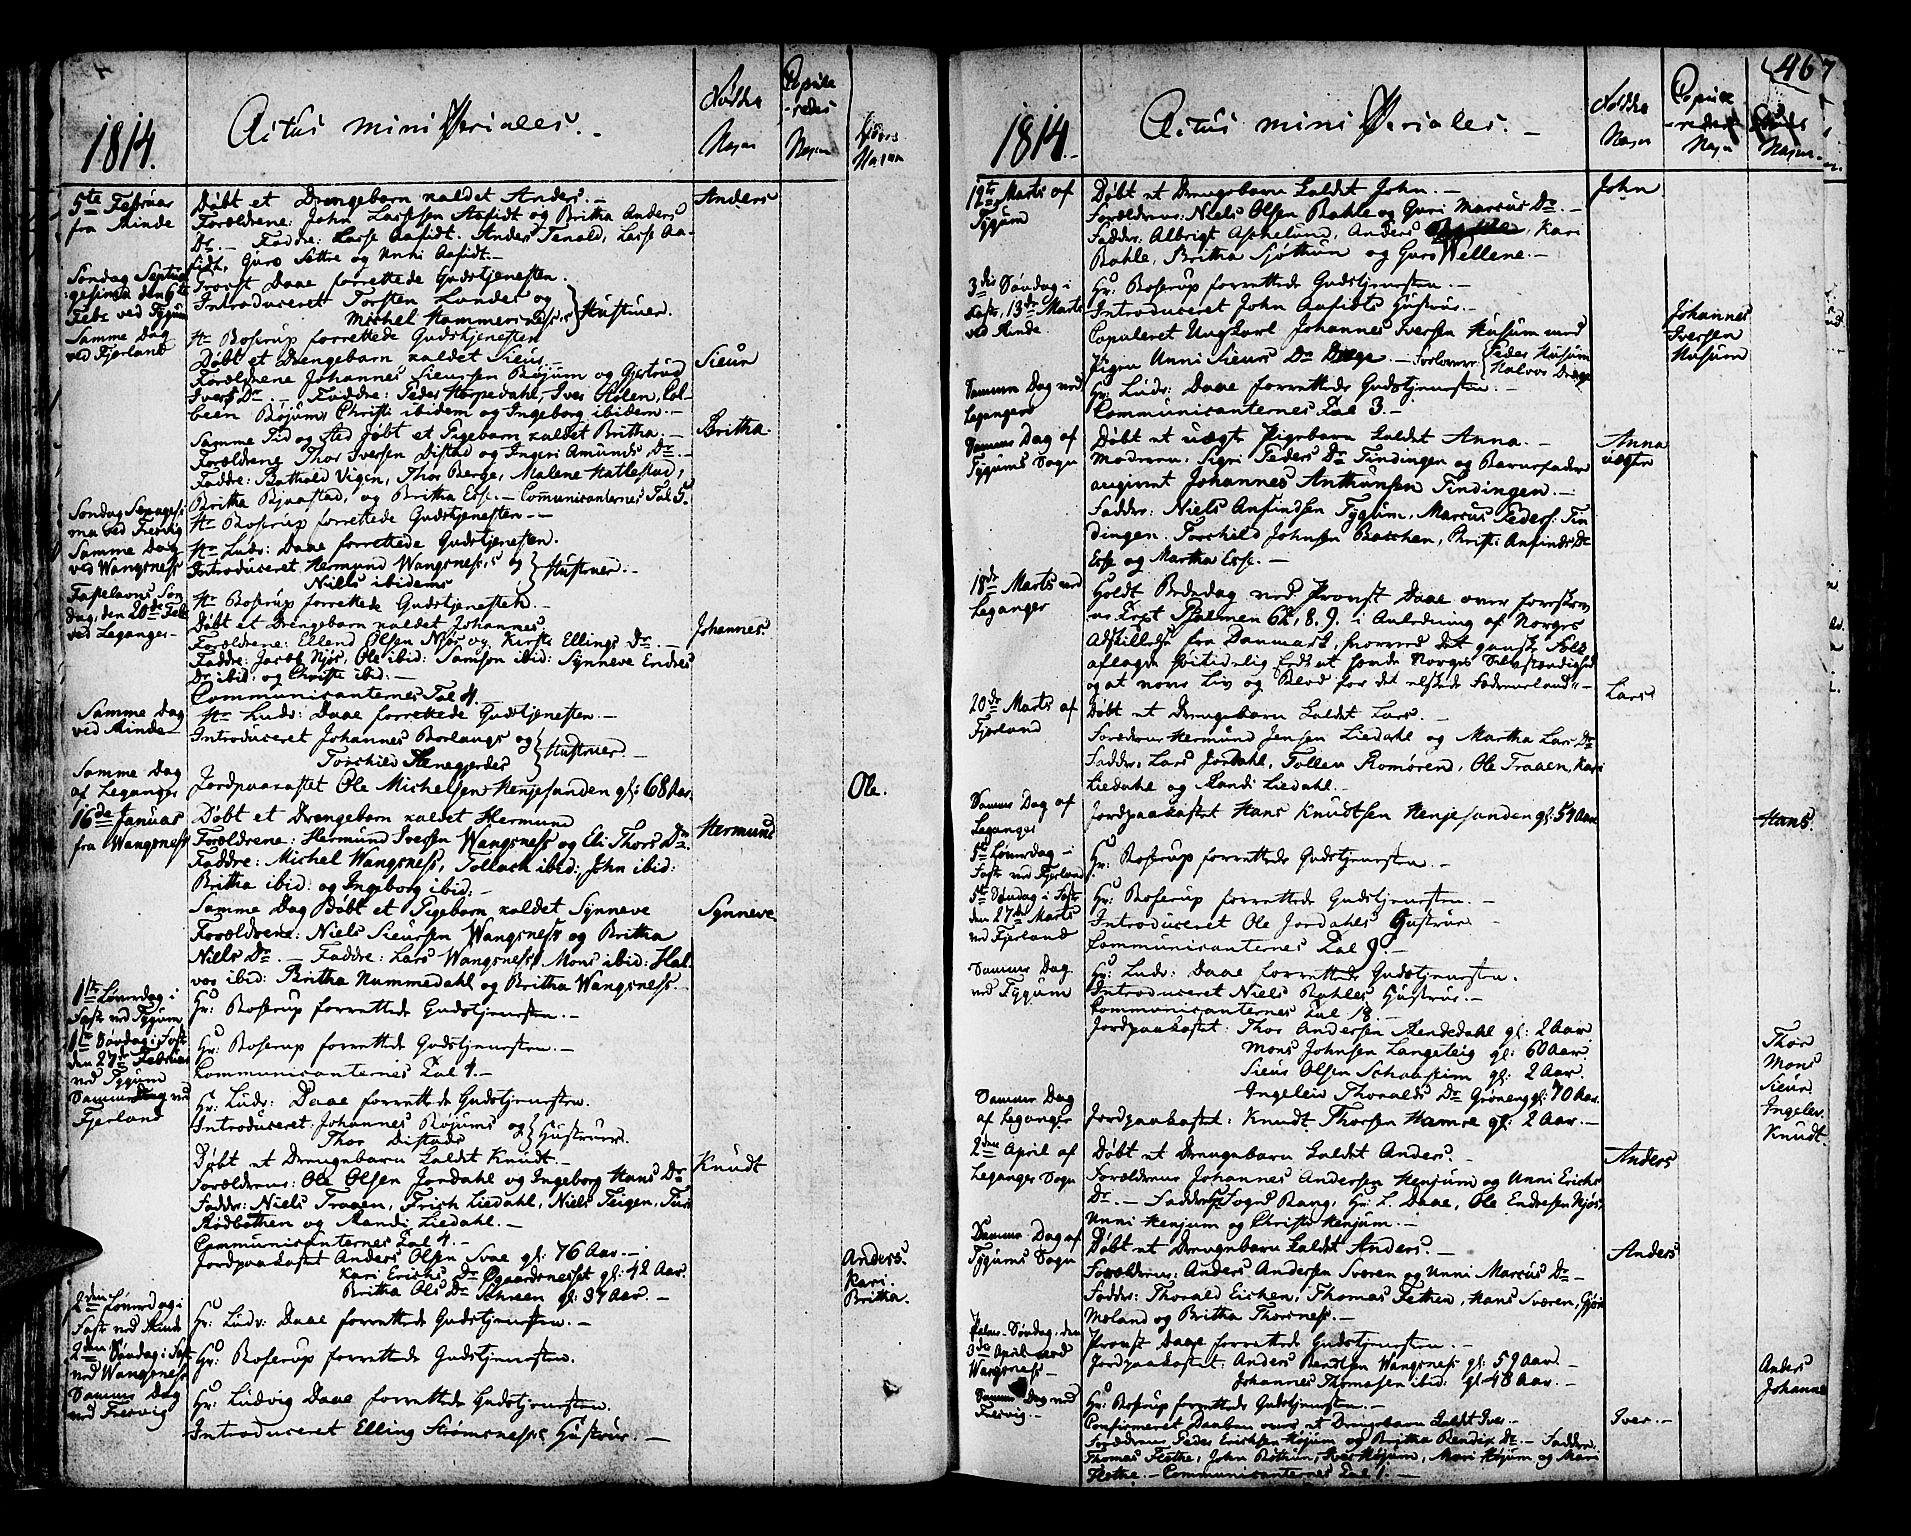 1814.
Actus ministeriales.
Døbte
Nafn
Copule
-rede
Nafn
Nafn
5te Februar
fra Rinde
Døbt et Drengebarn kaldet Anders. -
Forældrene: John Lassesen Aafidt og Britha Anders
Dr. - Faddre: Lasse Aafidt. Anders Tenold, Lasse Aa-
fidt, Guro Sættre og Unni Aafidt. -
Anders
Søndag Septua
gesima den 6te
Febr ved Tygum
Provst Daae forrettede Gudstjenesten.
Introduceret Torsten Lundes og
Michel Hammersness's } Hustruer.
Samme Dag
ved Fjerland
Hr Boserup forrettede Gudstjenesten
Døbt et Drengebarn kaldet Sieur -
Forældrene Johannes Sieursen Bøjum og Gjertrud
Ivers Dr. - Faddre: Peder Horpedahl, Iver Holen, Col-
been Bøjum, Christi ibidem og Ingeborg ibidem. -
Sieur
Samme Tid og Sted døbt et Pigebarn kaldet Britha. -
Forældrene Thor Iversen Distad og Ingeri Amunds Dr. -
Faddre: Bothold Vigen, Thor Berge, Malene Hatlestad,
Britha Bjaastad, og Britha Esse. - Comunicanternes Tal 5.
Britha.
Søndag Sexagesi-
ma ved Fresvig
Hr Boserup forrettede Gudstjenesten -
Samme Dag
ved Wangsness
Hr Ludv: Daae forrettede Gudstjenesten.
Introduceret Hermund Wangsness's og
Niels ibidems } Hustruer. -
Fastelavns Søn
dag, den 20de Febr
ved Leganger -
Hr Boserup forrettede Gudstjenesten. -
Døbt et Drengebarn kaldet Johannes
Forældrene: Ellend Olsen Njøs og Kirsti Ellings Dr. -
Faddre: Jacob Njøs, Ole ibid: Samson ibid: Synneve Endres
Dr ibid. og Christi ibid: -
Communicanternes Tal 4.
Johannes.
Samme Dag
ved Rinde
Hr Ludv: Daae forrettede Gudstjenesten. -
Introduceret Johannes Borlaugs og
Torchild Stenegjerdes } Hustruer. -
Samme Dag
af Leganger
Jordpaakastet Ole Michelsen Henjesanden gl: 68 Aar.
Ole.
16de Januar
fra Wangsness
Døbt et Drengebarn kaldet Hermund
Forældrene: Hermund Iversen Wangsness og Eli Thors Dr.
Faddre: Michel Wangsness, Tollach ibid: John ibid:
Britha ibid: og Ingeborg ibid: -
Hermund
Samme Dag Døbt et Pigebarn kaldet Synneve
Forældrene: Niels Sieursen Wangsness og Britha
Niels Dr. - Faddre: Lars Wangsness, Mons ibid: Hal-
vor ibid: Britha Nummedahl og Britha Wangsness. -
Synneve
1ste Løverdag i
Faste ved Tygum
Hr: Boserup forrettede Gudstjenesten. -
1ste Søndag i Fast
den 27de Februar
ved Tygum
Hr: Boserup forrettede Gudstjenesten. -
Communicanternes Tal 4. -
Samme Dag ved
Fjerland
Hr: Ludv: Daae forrettede Gudstjenesten.
Introduceret: Johannes Bøjums og
Thor Distads } Hustruer.
Døbt et Drengebarn kaldet Knudt. -
Forældrene: Ole Olsen Jordahl og Ingeborg Hans Dr
Faddre: Niels Traaen, Erich Liedahl, Niels Teigen, Turi
Rødbotten og Randi Liedahl. -
Communicanternes Tal 4. -
Knudt
Jordpaakastet Anders Olsen Svae gl: 76 Aar. -
Kari Erichs Dr Øgaardsnesset gl: 42 Aar.
Britha Ols Dr gl: 37 Aar. -
Anders.
Kari.
Britha.
2den Løverdag i
Fast ved Rinde
Hr: Ludv: Daae forrettede Gudstjenesten. -
2den Søndag i Fast
ved Wangsness
Hr: Boserup forrettede Gudstjenesten.
Samme Dag
ved Fresvig
Hr: Ludvig Daae forrettede Gudstjenesten.
Introduceret Elling Strømsness's Hustrue. -
467
1814.
Actus ministeriales. -
Døbte
Nafn
Copule
-rede
Nafn
Nafn
12te Marts af
Tygum
Døbt et Drengebarn kaldet John. -
Forældrene: Niels Olsen Bahle og Guri Marcus Dr. -
Faddre: Albrigt Askelund, Anders, Kari
Bahle, Britha Sjøthun og Guro Wellene. -
John
3die Søndag i
Faste, 13de Marts
ved Rinde
Hr: Boserup forrettede Gudstjenesten. -
Introduceret John Aafidts Hustrue. -
Copuleret Ungkarl Johannes Iversen Husum med
Pigen Unni Sieurs Dr Dræge. - Forlovere { Peder Husum
Halvor Dræge
Johannes
Iversen
Husum
Samme Dag ved
Leganger
Hr: Ludv: Daae forrettede Gudstjenesten. -
Communicanternes Tal 3. -
Samme Dag af
Tygums Sogn
Døbt et uægte Pigebarn kaldet Anna. -
Moderen: Sigri Peders Dr Tindingen og Barnefader
angivet Johannes Anthunsen Tindingen. -
Faddre: Niels Anfindsen Tygum, Marcus Peders. Tin
dingen. Torchild Johnsen Bacchen, Christi Anfinds Dr
Esse og Martha Esse. -
Anna
uægte
18de Marts ved
Leganger
Holdt Bededag ved Provst Daae over foreskrev
ne Text Psalmen 62, 8, 9. i Anledning af Norges
Adskillelse fra Danmark, hvorved det gansk Folk
aflagde høitidelig Eed at hævde Norges Selvstændighed
og at vove Liv og Blod for det elskede Fødeneland. -
20de Marts af
Fjerland
Døbt et Drengebarn kaldet Lars. -
Forældrene Hermund Jensen Liedahl og Martha Lars Dr
Faddre: Lars Jordahl, Tollev Romøren, Ole Traaen, Kari
Liedahl og Randi Liedahl. -
Lars
Samme Dag af
Leganger
Jordpaakastet Hans Knudtsen Henjesanden gl: 54 Aar
Hans.
5te Løverdag i
Fast ved Fjerland
Hr: Boserup forrettede Gudstjenesten. -
5te Søndag i Fast
den 27de Marts
ved Fjerland
Hr: Boserup forrettede Gudstjenesten. -
Introduceret Ole Jordahls Hustrue
Communicanternes Tal 9. -
Samme Dag
ved Tygum
Hr: Ludv: Daae forrettede Gudstjenesten.
Introduceret Niels Bahles Hustrue. -
Communicanternes Tal 18. -
Jordpaakastet: Thor Andersen Rendedahl gl: 2 Aar
Mons Johnsen Langeteig gl: 60 Aar.
Sieur Olsen Schahseim gl: 2 Aar.
Ingelev Thoralds Dr Grøneng gl: 70 Aar.
Thor
Mons
Sieur
Ingelev.
Samme Dag
af Leganger
Jordpaakastet: Knudt Thorsen Hamre gl: 2 Aar. -
Knudt.
2den April af
Leganger Sogn
Døbt et Drengebarn kaldet Anders. -
Forældrene Johannes Andersen Henjum og Unni Erichs
Dr. - Faddre: Fogd Rang, Hr. L. Daae, Ole Endresen Njøs,
Unni Henjum og Christi Henjum. -
Anders
Samme Dag af
Tygums Sogn
Døbt et Drengebarn kaldet Anders. -
Forældrene: Anders Andersen Sværen og Unni Marcus Dr -
Faddre: Thorald Eichen, Thomas Fethen, Hans Sværen, Gjøri
Moland og Britha Thorsnes. -
Anders
Palme-Søndag. den
3de April ved
Wangsness -
Provst Daae forrettede Gudstjenesten. -
Jordpaakastet. Anders Bendtsen Wangsness gl: 59 Aar. -
Johannes Thomassen ibid: gl: 48 Aar. -
Anders
Johanne
Samme Dag ved
Fresvig -
Hr: Boserup forrettede Gudstjenesten. -
Confirmeret Daaben over et Drengebarn kaldet Iver. -
Forældrene Peder Erichsen Højum og Britha Bendix Dr. - Faddre:
Thomas Flethe, John Bøthun, Iver Højum, Mari Højum og Mari
Flethe. - Communicanternes Tal 1. -
Iver. -